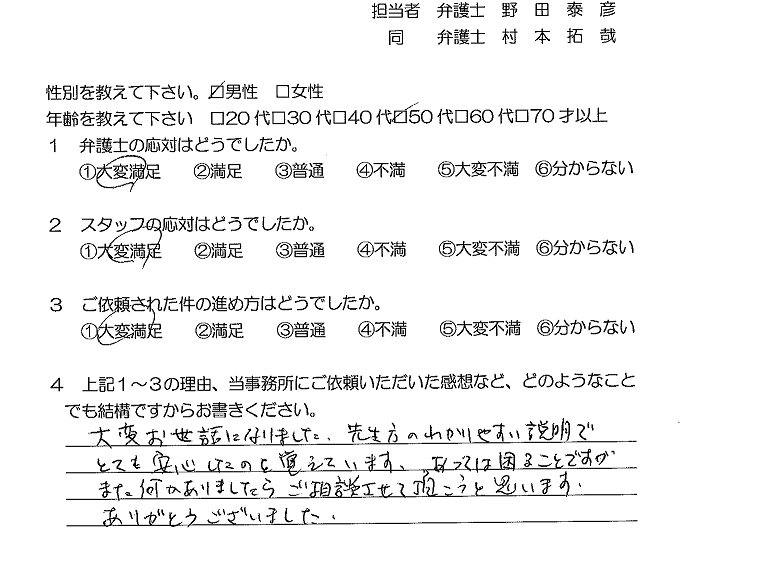 担当者 弁護士 野 田 泰 彦
同 弁護士 村 本 拓 哉
性別を教えて下さい。☑男性 □女性
年齢を教えて下さい □20代□30代□40代☑50代□60代□70才以上
1 弁護士の応対はどうでしたか。
①大変満足 ②満足 ③普通 ④不満 ⑤大変不満 ⑥分からない
2 スタッフの応対はどうでしたか。
①大変満足 ②満足 ③普通 ④不満 ⑤大変不満 ⑥分からない
3 ご依頼された件の進め方はどうでしたか。
①大変満足 ②満足 ③普通 ④不満 ⑤大変不満 ⑥分からない
4 上記1～3の理由、当事務所にご依頼いただいた感想など、どのようなこと
でも結構ですからお書きください。
大変お世話になりました。先生方のわかりやすい説明で
とても安心したのを覚えています。あっては困ることですが
また何かありましたらご相談させて頂こうと思います。
ありがとうございました。